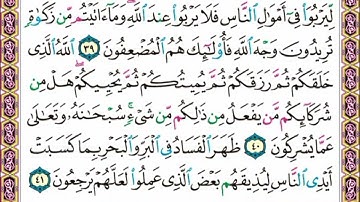 لِّيَرْبُوَا۟ فِىٓ أَمْوَٰلِ ٱلنَّاسِ فَلَا يَرْبُوا۟ عِندَ ٱللَّهِ ۖ وَمَآ ءَاتَيْتُم مِّن زَكَوٰةٍ
تُرِيدُونَ وَجْهَ ٱللَّهِ فَأُو۟لَٰٓئِكَ هُمُ ٱلْمُضْعِفُونَ ٣٩ ٱللَّهُ ٱلَّذِى
خَلَقَكُمْ ثُمَّ رَزَقَكُمْ ثُمَّ يُمِيتُكُمْ ثُمَّ يُحْيِيكُمْ ۖ هَلْ مِن
شُرَكَآئِكُم مَّن يَفْعَلُ مِن ذَٰلِكُم مِّن شَىْءٍ ۚ سُبْحَٰنَهُۥ وَتَعَٰلَىٰ
عَمَّا يُشْرِكُونَ ٤٠ ظَهَرَ ٱلْفَسَادُ فِى ٱلْبَرِّ وَٱلْبَحْرِ بِمَا كَسَبَتْ
أَيْدِى ٱلنَّاسِ لِيُذِيقَهُم بَعْضَ ٱلَّذِى عَمِلُوا۟ لَعَلَّهُمْ يَرْجِعُونَ ٤١